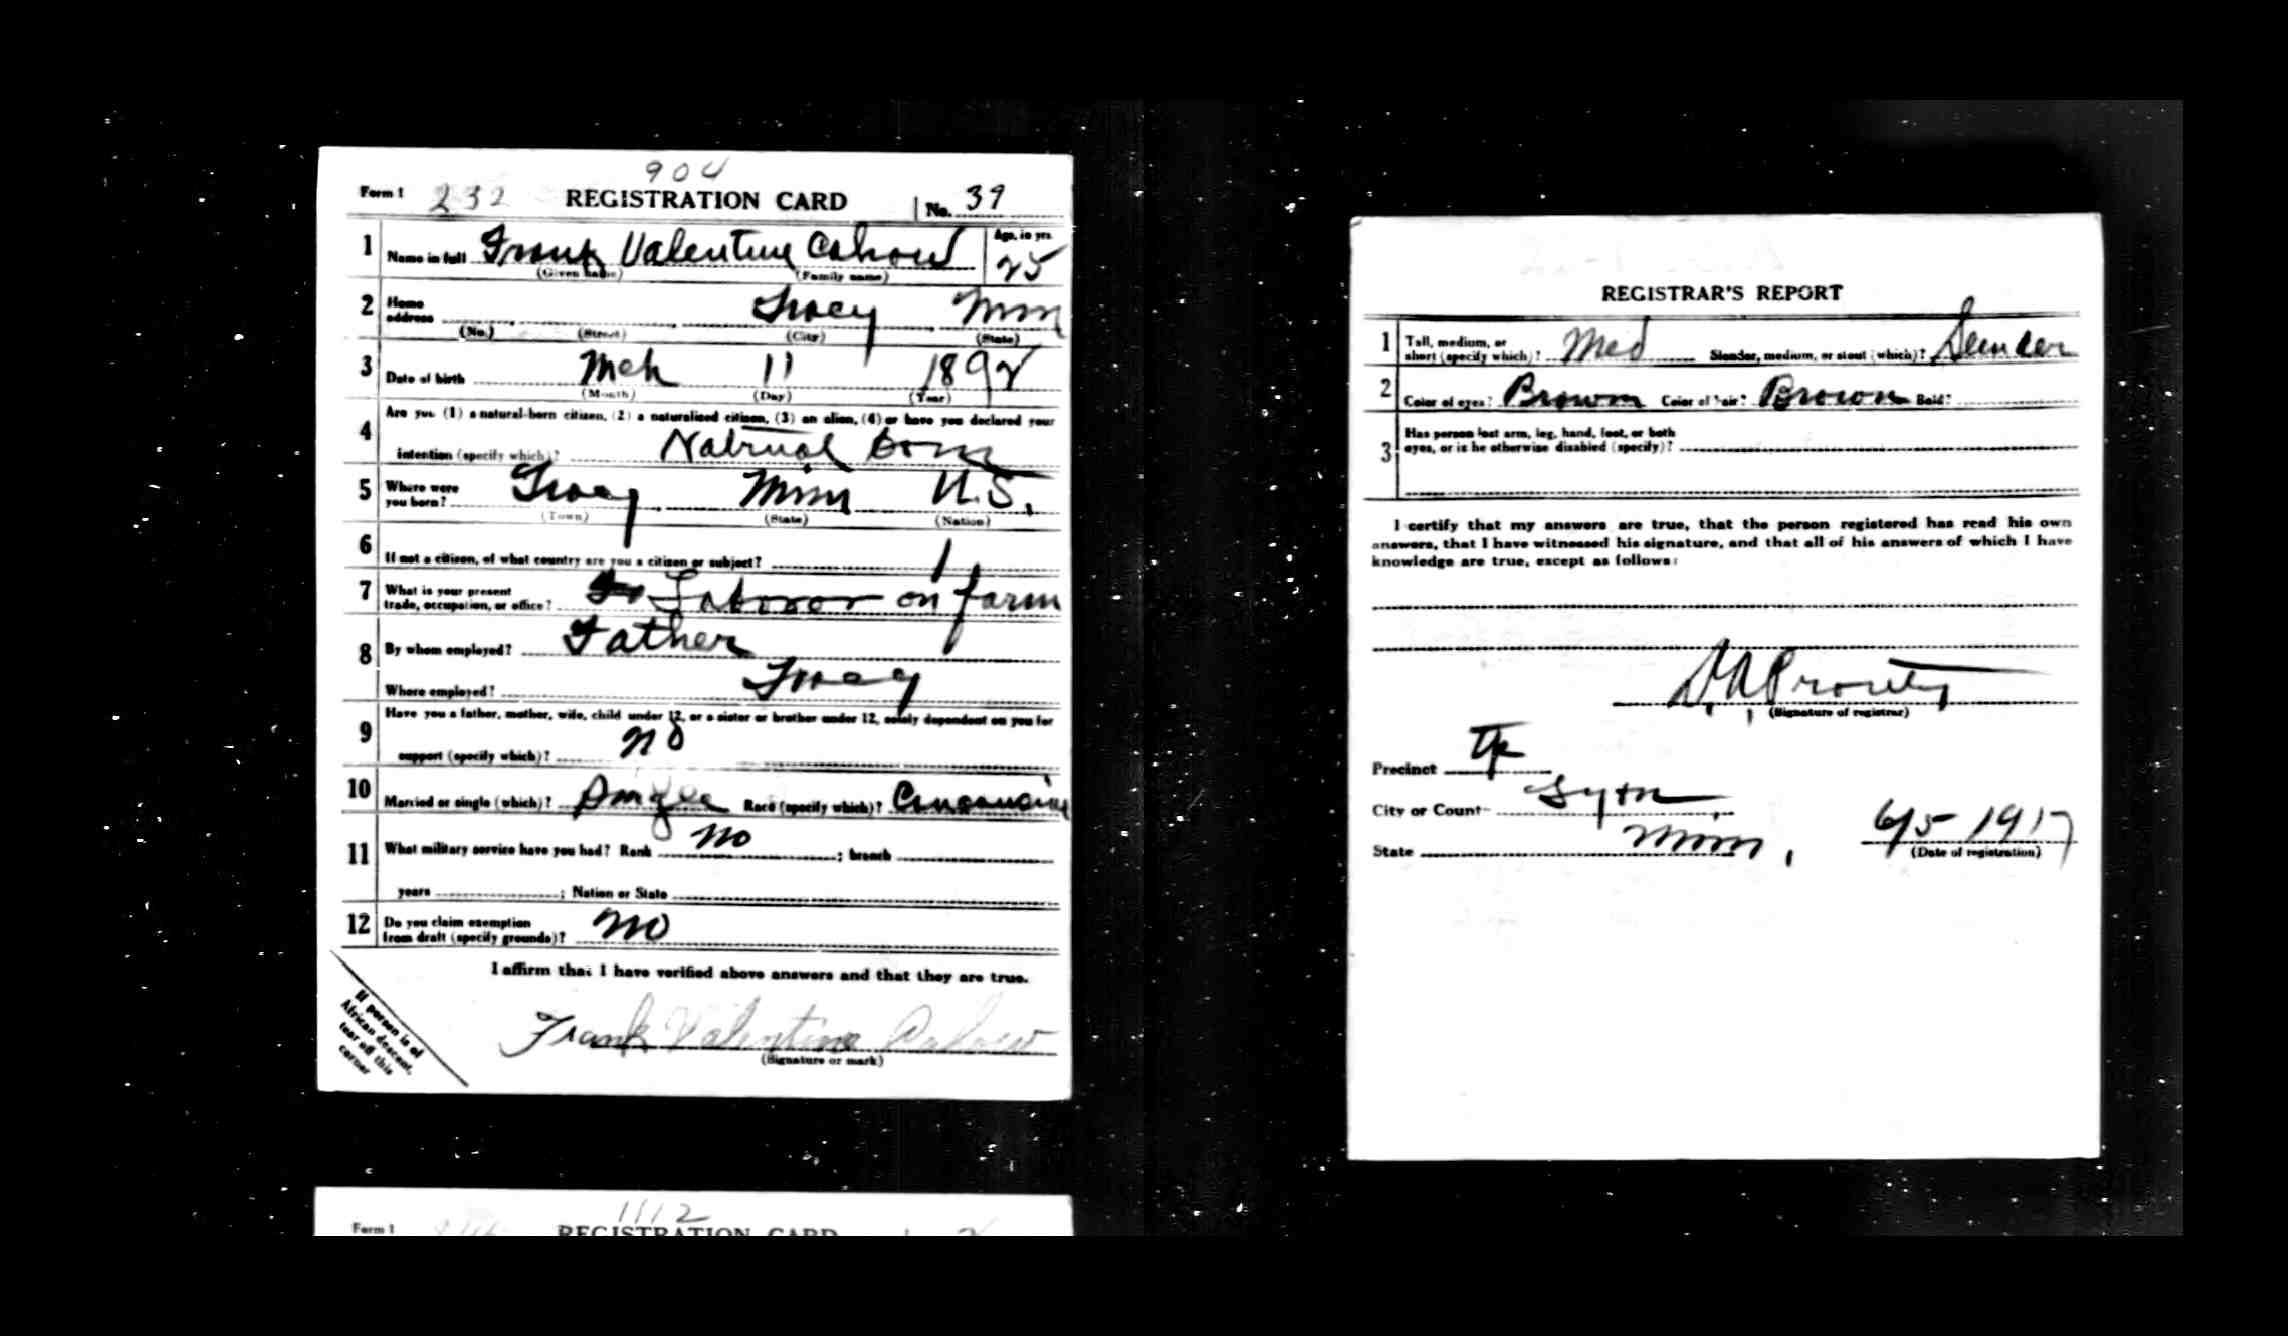 904
Form 1 232 REGISTRATION CARD No. 39
1 Name in full Frank Valentine Cahow Age, in yrs. 25
(Given name) (Family name)
2 Home address Tracy Minn
(No.) (Street) (City) (State)
3 Date of birth Mch 11 1892
(Month) (Day) (Year)
4 Are you (1) a natural-born citizen, (2) a naturalized citizen, (3) an alien, (4) or have you declared your
intention (specify which)? Natrual born
5 Where were you born? Tracy Minn U.S.
(Town) (State) (Nation)
6 If not a citizen, of what country are you a citizen or subject?
7 What is your present trade, occupation, or office? Laboror on farm
8 By whom employed? Father
Where employed? Tracy
9 Have you a father, mother, wife, child under 12, or a sister or brother under 12, solely dependent on you for
support (specify which)? no
10 Married or single (which)? Single Race (specify which)?
11 What military service have you had? Rank no ; branch
years ; Nation or State
12 Do you claim exemption from draft (specify grounds)? no
I affirm that I have verified above answers and that they are true.
Frank Valentine Cahow
(Signature or mark)
If person is of
African descent,
tear off this
corner
REGISTRAR'S REPORT
1 Tall, medium, or short (specify which)? Med Slender, medium, or stout (which)? Slender
2 Color of eyes? Brown Color of hair? Brown Bald?
3 Has person lost arm, leg, hand, foot, or both
eyes, or is he otherwise disabled (specify)?
I certify that my answers are true, that the person registered has read his own
answers, that I have witnessed his signature, and that all of his answers of which I have
knowledge are true, except as follows:
Prouty
(Signature of registrar)
Precinct
City or County Lyon
State Minn. 6/5 1917
(Date of registration)
1112
Form 1 REGISTRATION CARD